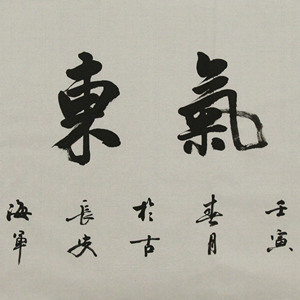 氣東
壬寅
春月
於古
長安
海軍